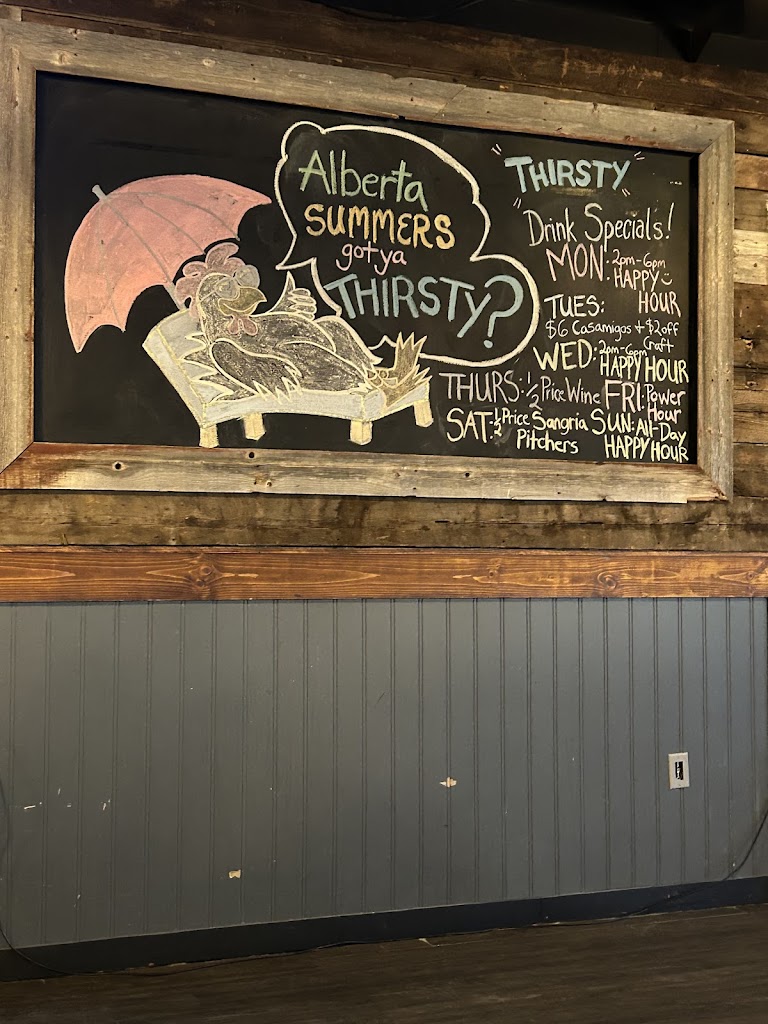 Alberta
SUMMERS
got ya
THIRSTY?
"THIRSTY"
Drink Specials!
MON: 2pm-6pm
HAPPY
HOUR
TUES:
$6 Casamigos + $2 off
Craft
WED: 2pm-6pm
HAPPY HOUR
THURS: 1/2 Price Wine
FRI: Power
Hour
SAT: 1/2 Price Sangria
Pitchers
SUN: All-Day
HAPPY HOUR